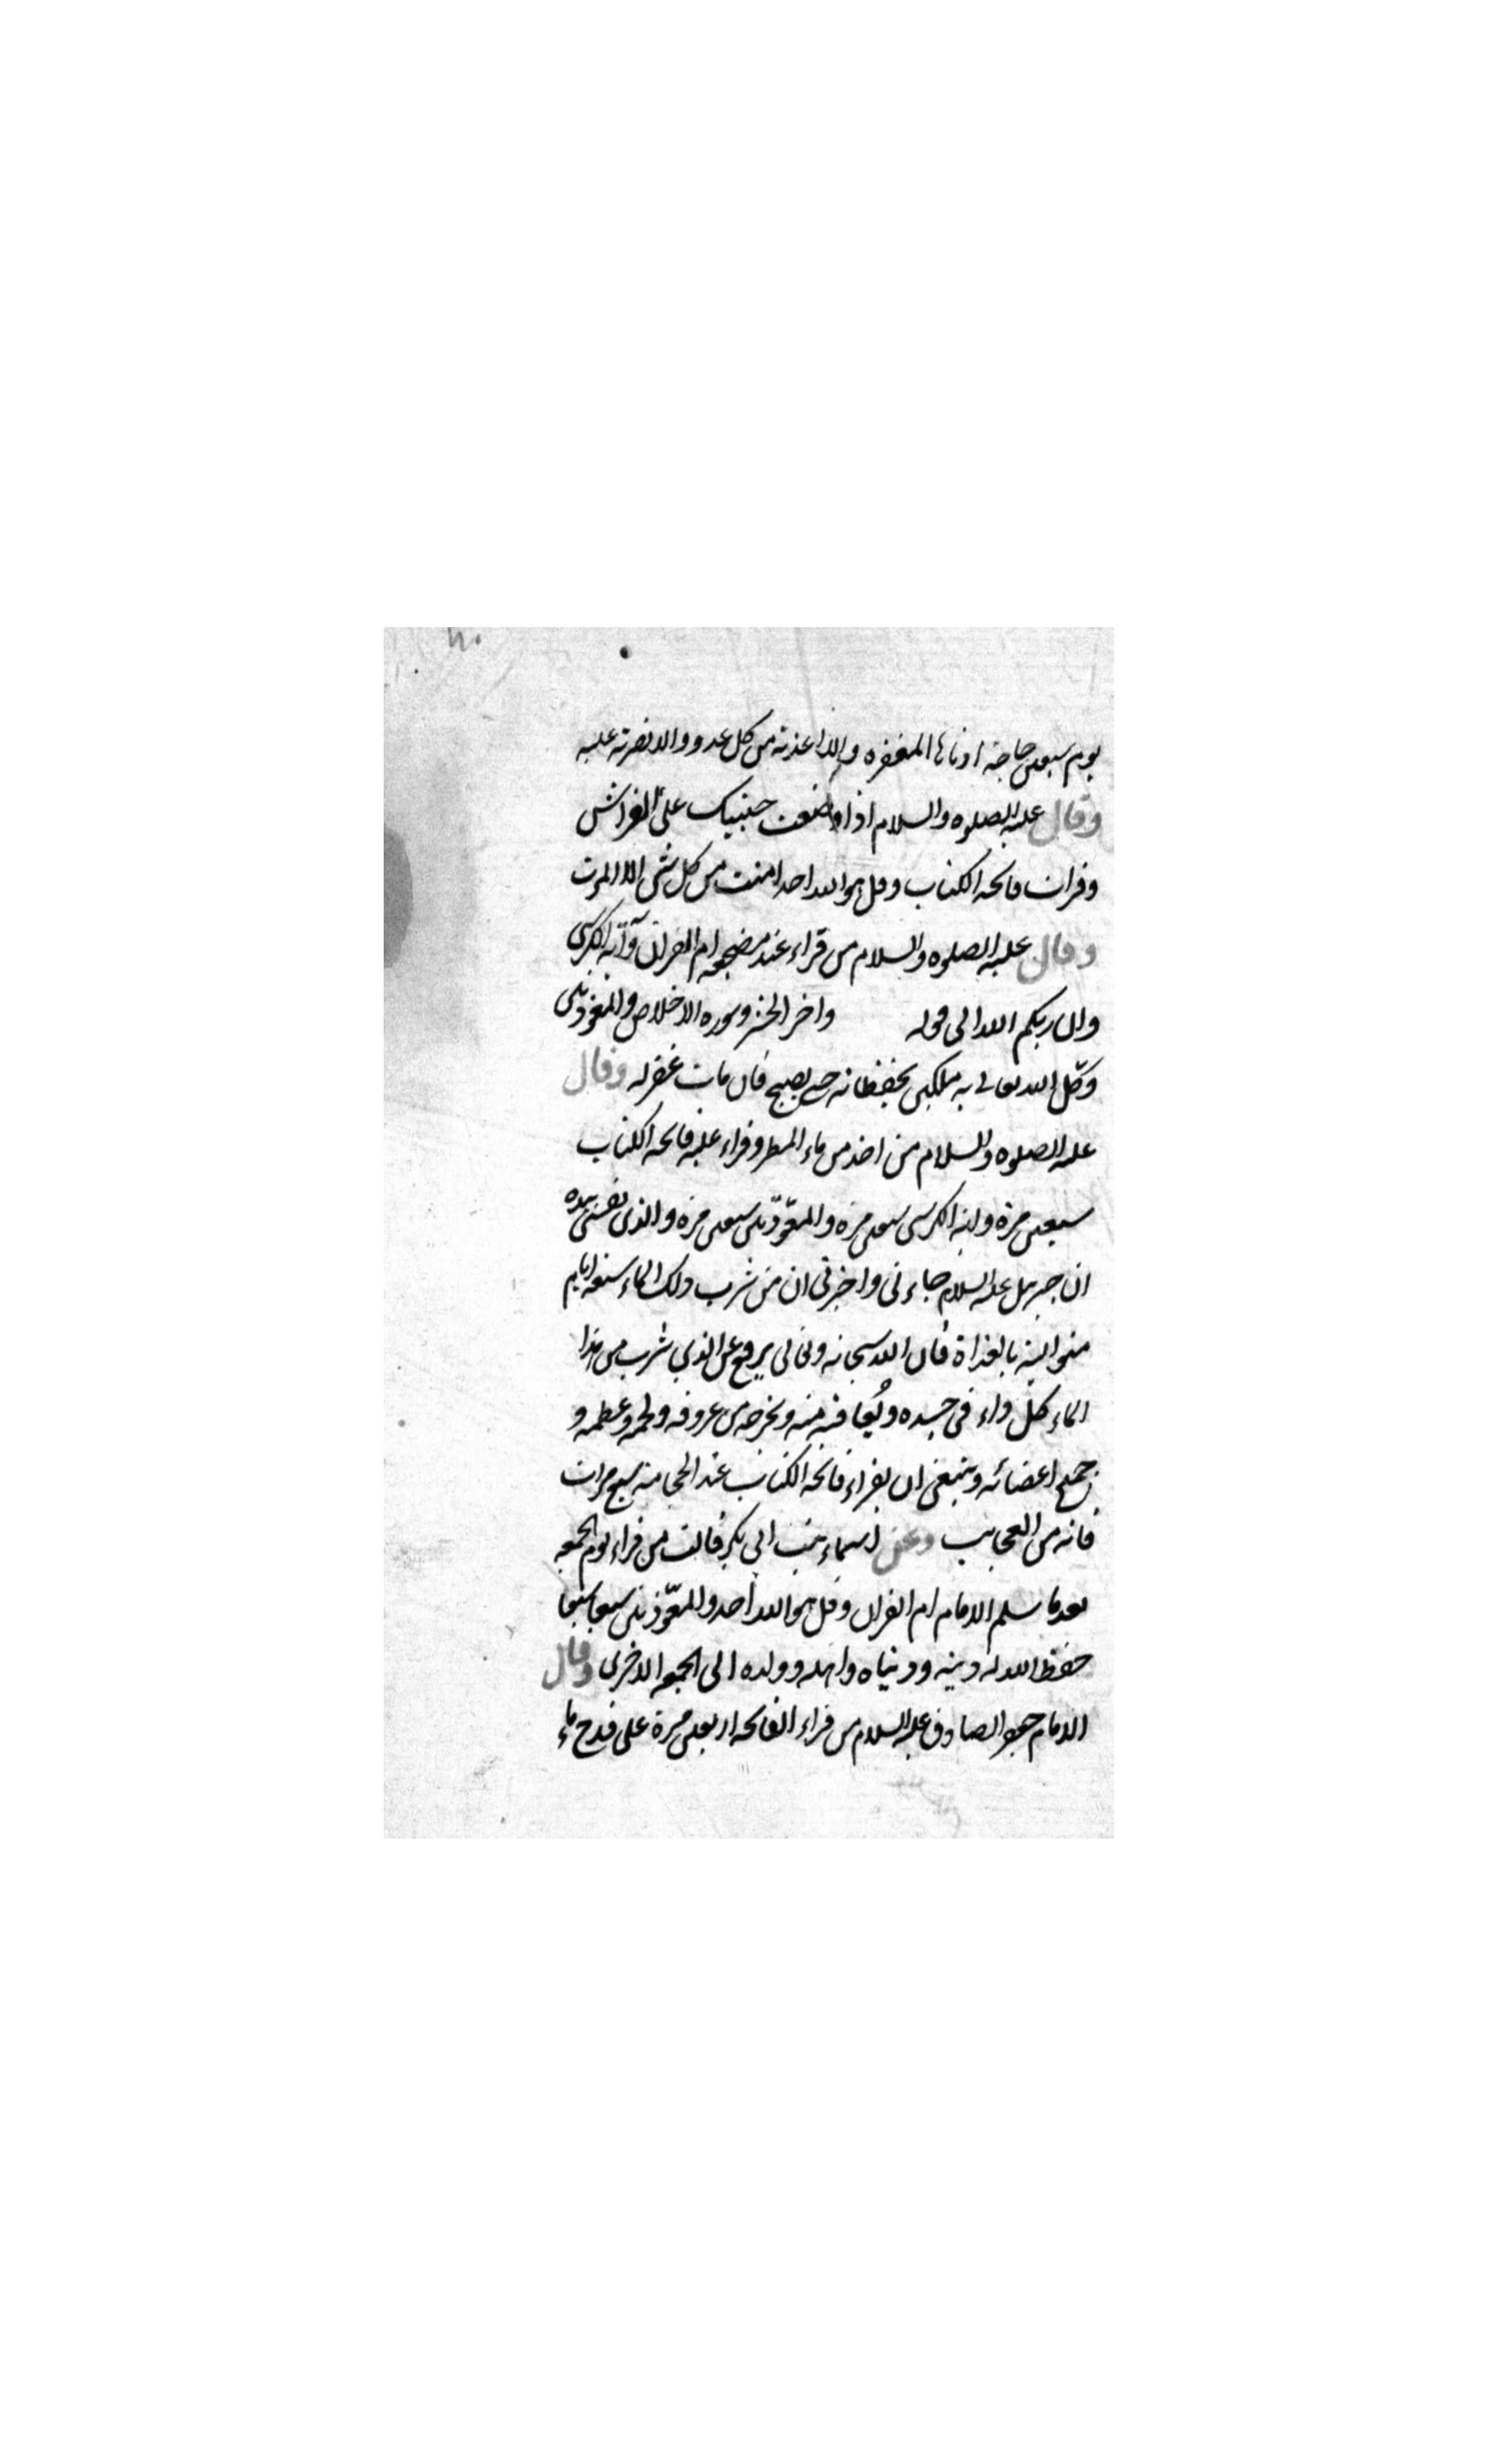 يوم سبعين حاجة ادناها المغفره والا اعذته من كل عدو والا نصرته عليه
وقال عليه الصلوه والسلام اذا وضعت جنبيك على الفراش
وقرات فاتحه الكتاب وقل هو الله احد امنت من كل شئ الا الموت
وقال عليه الصلوه والسلام من قراء عند مضجعه ام القران وآية الكرسى
وان ربكم الله الى قوله واخر الحشر وسوره الاخلاص والمعوذتين
وكّل الله تعالى به ملكين يحفظانه حتى يصبح فان مات غفر له وقال
عليه الصلوه والسلام من اخذ من ماء المطر وقراء عليه فاتحه الكتاب
سبعين مرة واية الكرسى سبعين مره والمعوّذتين سبعين مره والذى نفسى بيده
ان جبريل عليه السلام جاءنى واخبرنى ان من شرب ذلك الماء سبعة ايام
متوالية بالغداة فان الله سبحانه وتعالى يرفع عن الذى شرب من هذا
الماء كل داء فى جسده ويُعافيه منه ويخرجه من عروقه ولحمه وعظمه و
جميع اعضائه وينبغى ان يقراء فاتحه الكتاب عند الحجامة سبع مرات
فانه من العجايب وعن اسماء بنت ابى بكر قالت من قراء يوم الجمعه
بعد ما سلم الامام ام القران وقل هو الله احد والمعوّذتين سبعا سبعا
حفظ الله له دينه ودنياه واهله وولده الى الجمعه الاخرى وقال
الامام جعفر الصادق عليه السلام من قراء الفاتحه اربعين مرة على قدح ماء